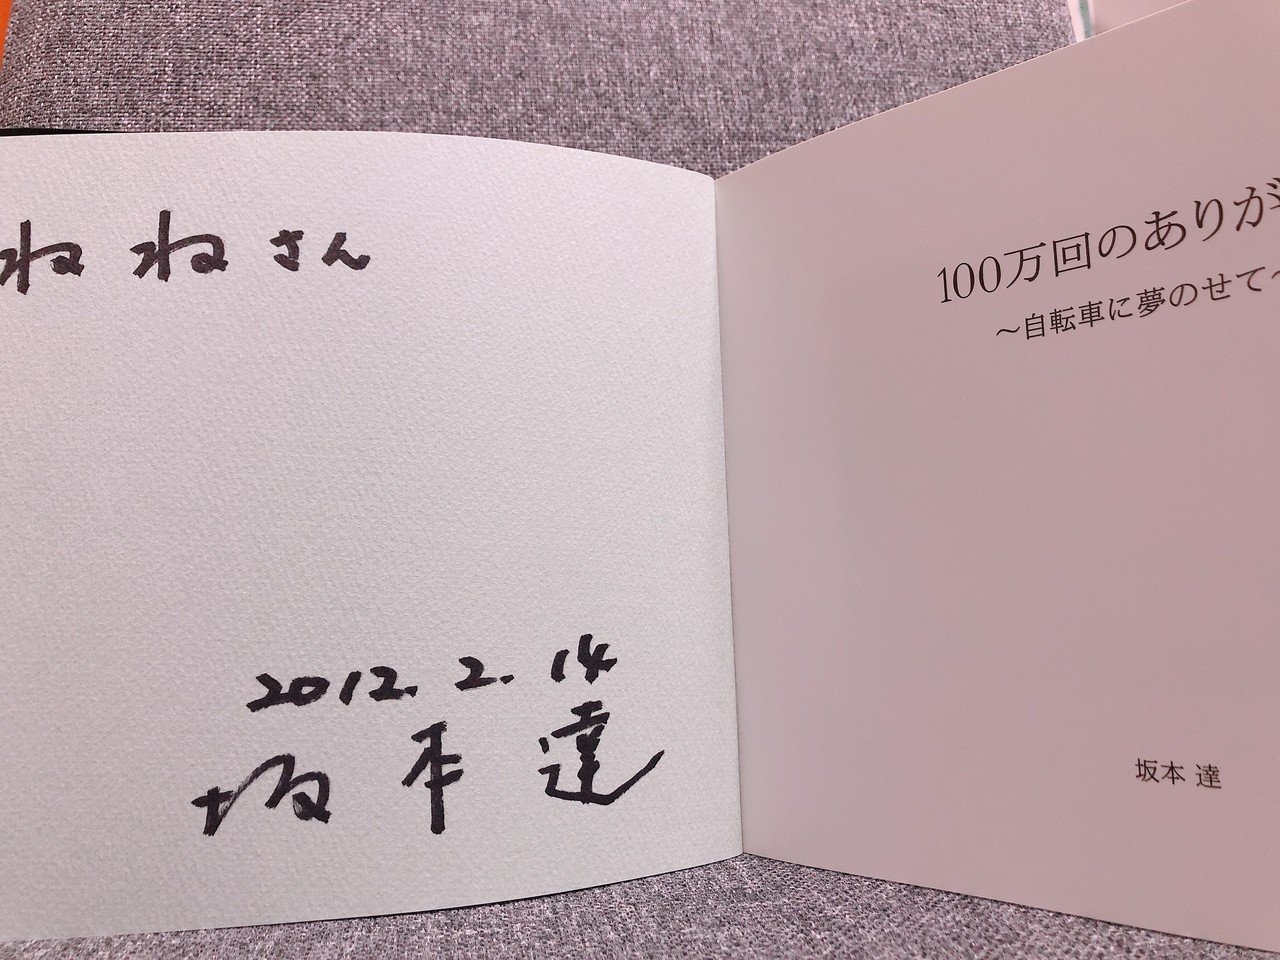 ねねさん
2012. 2. 14
坂本 達
100万回のありが
～自転車に夢のせて～
坂本 達